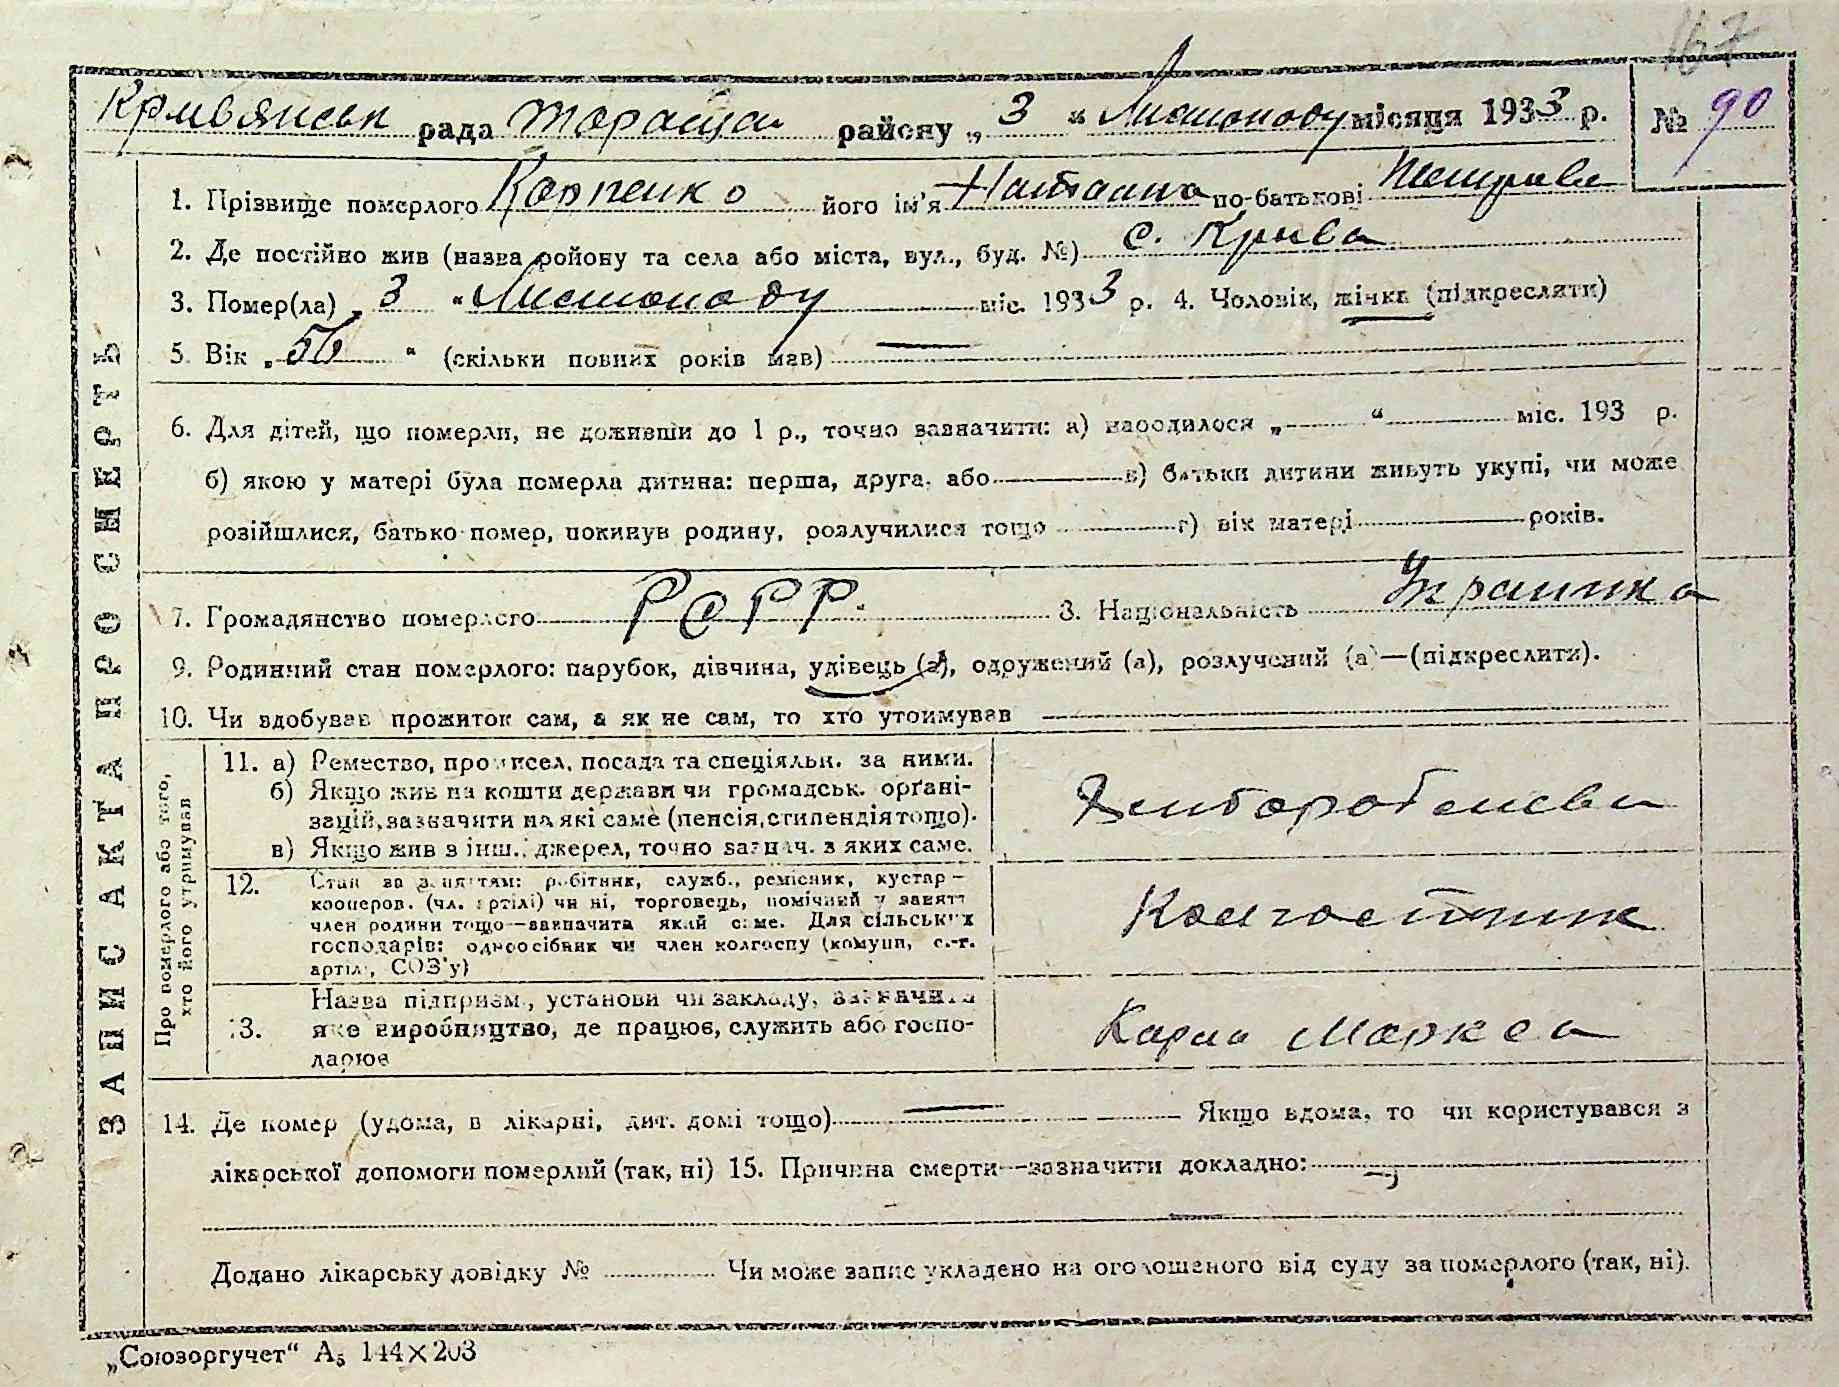 167
Кривянськ рада Тараща району „ 3 “ Листопаду місяця 1933 р. № 90
ЗАПИС АКТА ПРО СМЕРТЬ
1. Прізвище померлого Карпенко його ім'я по-батькові
2. Де постійно жив (назва ройону та села або міста, вул., буд. №) с. Крива
3. Помер(ла) „ 3 “ Листопаду міс. 1933 р. 4. Чоловік, жінка (підкресляти)
5. Вік „ 56 “ (скільки повних років мав) —
6. Для дітей, що померли, не доживши до 1 р., точно зазначити: а) народилося „ — “ — міс. 193 р.
б) якою у матері була померла дитина: перша, друга, або — в) батьки дитини живуть укупі, чи може
розійшлися, батько помер, покинув родину, розлучилися тощо — г) вік матері — років.
7. Громадянство померлого РСРР. 8. Національність Українка
9. Родинний стан померлого: парубок, дівчина, удівець (а), одружений (а), розлучений (а)—(підкреслити).
10. Чи здобував прожиток сам, а як не сам, то хто утримував —
Про померлого або того,
хто його утримував
11. а) Ремество, промисел, посада та спеціяльн. за ними.
б) Якщо жив на кошти держави чи громадськ. орґані-
зацій, зазначити на які саме (пенсія, стипендія тощо).
в) Якщо жив з інш. джерел, точно зазнач. з яких саме.
12. Стан за заняттям: робітник, служб., ремісник, кустар —
кооперов. (чл. артілі) чи ні, торговець, помічний у занятт
член родини тощо—зазначити який саме. Для сільських
господарів: одноосібник чи член колгоспу (комуни, с.-г.
артілі, СОЗ'у)
Колгоспник
13. Назва підприєм., установи чи закладу, зазначити
яке виробництво, де працює, служить або госпо-
дарює
Карла Маркса
14. Де помер (удома, в лікарні, дит. домі тощо) — Якщо вдома, то чи користувався з
лікарської допомоги померлий (так, ні) 15. Причина смерти—зазначити докладно: —
Додано лікарську довідку № Чи може запис укладено на оголошеного від суду за померлого (так, ні).
„Союзоргучет“ А₅ 144×203